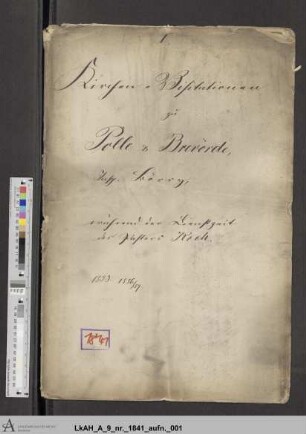 1.
Kirchen-Visitationen
zu
Polle u. Brevörde,
Insp. Börry,
während der Dienstzeit
des Pastors Koch.
LkAH_A_9_nr._1841_aufn._001